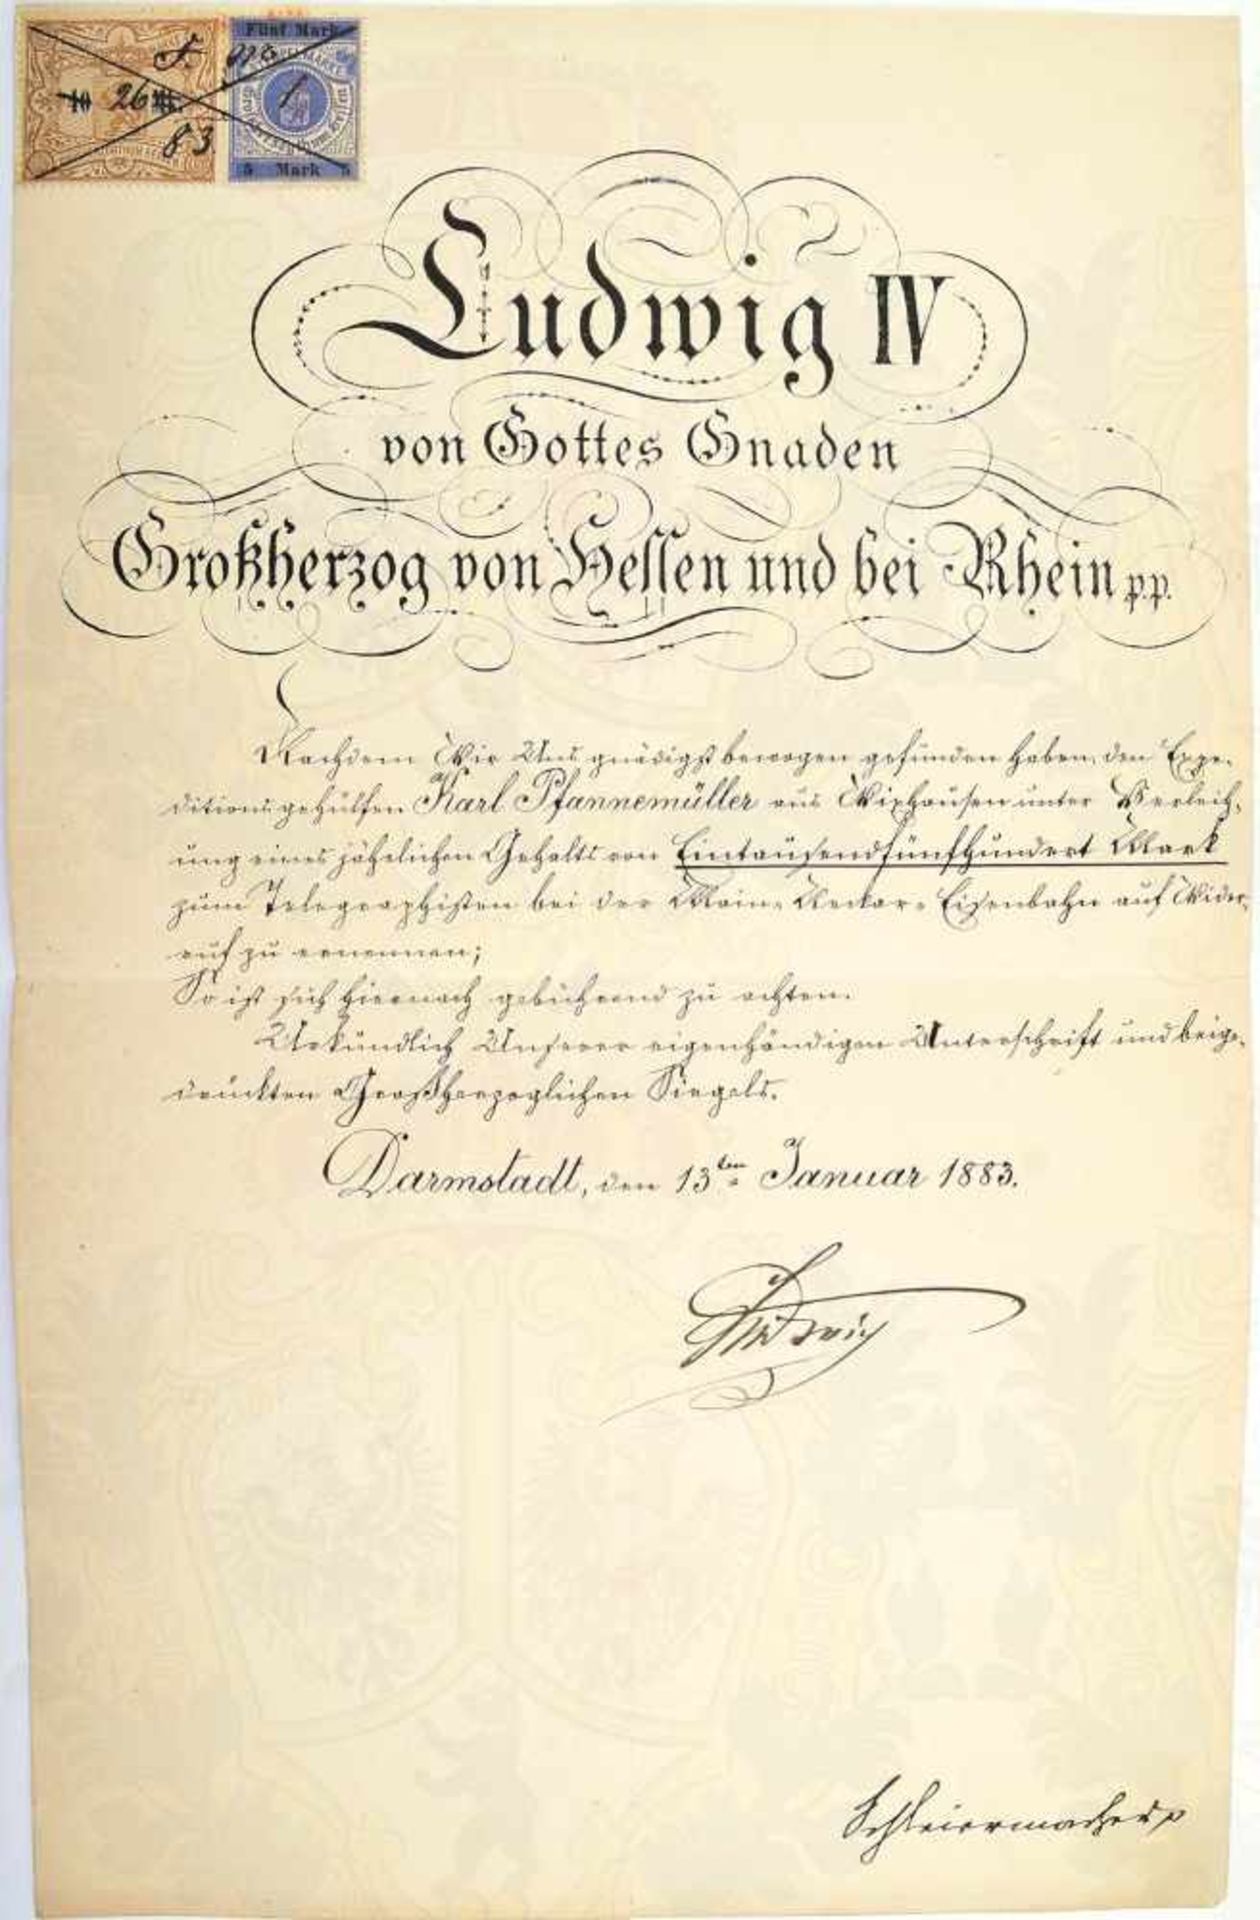 Fünf Mark
10 26 M.
83.
5 Mark 5
Ludwig IV
von Gottes Gnaden
Großherzog von Hessen und bei Rhein p.p.
Nachdem Wir Uns gnädigst bewogen gefunden haben, den Expe-
ditionsgehülfen Karl Pfannemüller aus Wixhausen unter Verleih-
ung eines jährlichen Gehalts von Eintausendfünfhundert Mark
zum Telegraphisten bei der Main-Neckar-Eisenbahn auf Wider-
ruf zu ernennen;
So ist sich hiernach gebührend zu achten.
Urkundlich Unserer eigenhändigen Unterschrift und beige-
druckten Großherzoglichen Siegels.
Darmstadt, den 13ten Januar 1883.
Ludwig
Schleiermacher